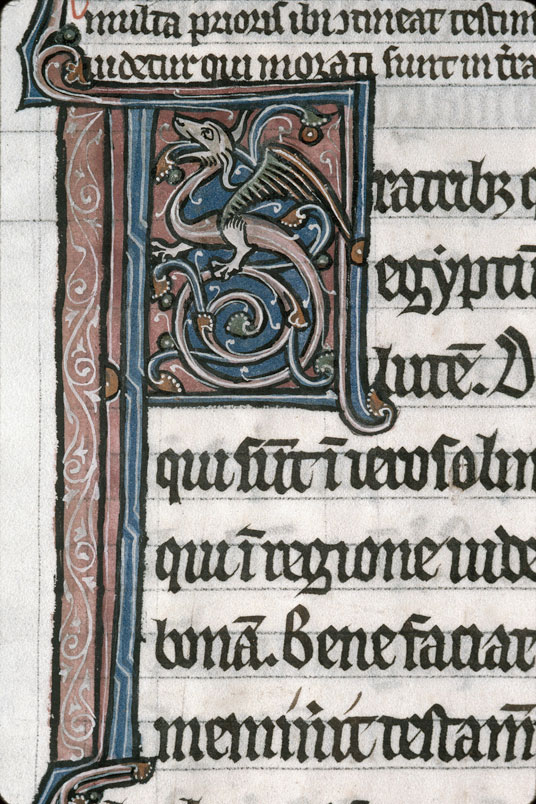 multa prioris ibi ↄtineat testim
uidetur qui morati sunt in t̄ra
Fratribꝫ q
egyptū
lutē. D
qui sūt ī ierosolim
qui ī regione iude
bonā. Benefaciat
meminit testam̄